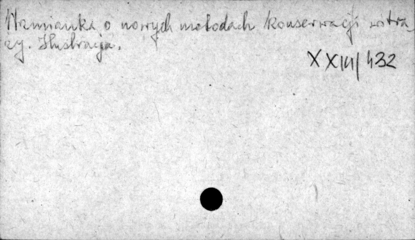 Wzmianka o nowych metodach konserwacji witra
ży. Ilustracja.
XXIII/432